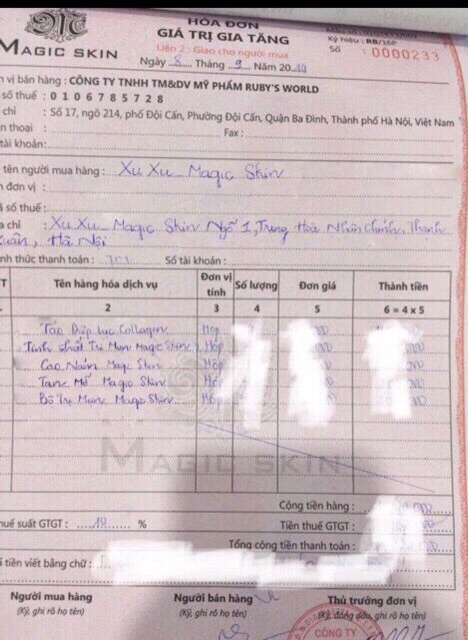 MAGIC SKIN
HÓA ĐƠN
GIÁ TRỊ GIA TĂNG
Liên 2: Giao cho người mua
Ngày 8 Tháng 9 Năm 20
Ký hiệu : RB/16P
Số : 0000233
n vị bán hàng : CÔNG TY TNHH TM&DV MỸ PHẨM RUBY'S WORLD
số thuế : 0106785728
chỉ : Số 17, ngõ 214, phố Đội Cấn, Phường Đội Cấn, Quận Ba Đình, Thành phố Hà Nội, Việt Nam
n thoại : Fax :
tài khoản:
tên người mua hàng : Xu Xu Magic Skin
n đơn vị :
ã số thuế:
a chỉ : Xu Xu Magic Skin Ngõ 1, Trung Hoà Nhân Chính, Thanh
Xuân, Hà Nội
nh thức thanh toán : Số tài khoản :
T Tên hàng hóa dịch vụ Đơn vị tính Số lượng Đơn giá Thành tiền
2 3 4 5 6 = 4 x 5
Táo Diệp Lục Collagen Hộp
Tinh chất Trị Mụn Magic Skin Hộp
Cao Nám Magic Skin Hộp
Tan Mỡ Magic Skin Hộp
Bộ Trị Mụn Magic Skin Hộp
MAGIC SKIN
Cộng tiền hàng :
huế suất GTGT : 10 % Tiền thuế GTGT :
Tổng cộng tiền thanh toán :
ố tiền viết bằng chữ :
Người mua hàng Người bán hàng Thủ trưởng đơn vị
(Ký, ghi rõ họ tên) (Ký, ghi rõ họ tên) (Ký, đóng dấu, ghi rõ họ tên)
CÔNG TY